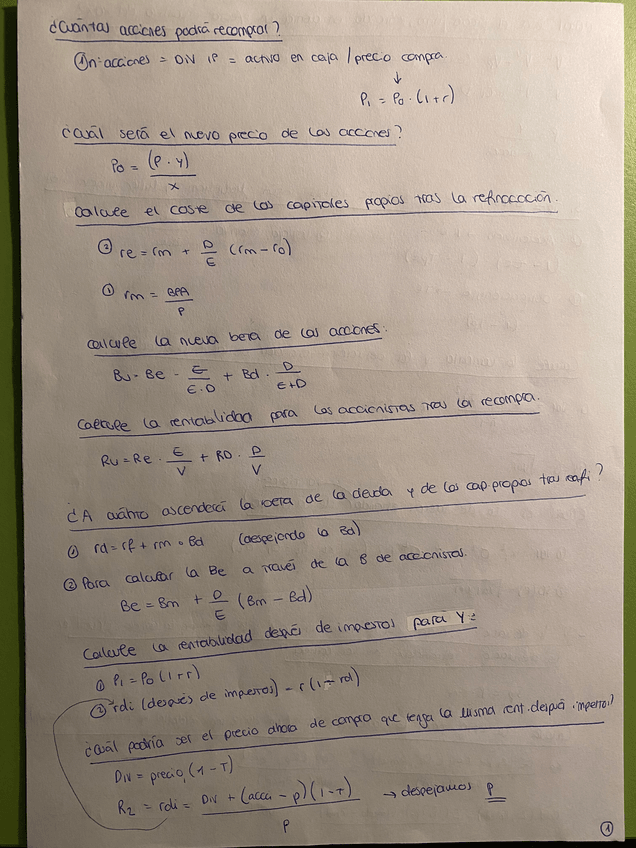 ¿Cuántas acciones podrá recomprar?
① nº acciones = DIV ÷ P = activo en caja / precio compra.
↓
P₁ = P₀ · (1+r)
¿Cuál será el nuevo precio de las acciones?
P₀ = (P · y) / x
Calcule el coste de los capitales propios tras la refinacación.
② re = rm + D/E (rm - r₀)
① rm = BPA / P
Calcule la nueva beta de las acciones.
Bu = Be · E/E·D + Bd · D/E+D
Calcule la rentabilidad para los accionistas tras la recompra.
Ru = Re · E/V + RD · D/V
¿A cuánto ascenderá la beta de la deuda y de los cap. propios tras refi?
① rd = rf + rm · Bd (despejando la Bd)
② Para calcular la Be a través de la B de accionistas.
Be = Bm + D/E (Bm - Bd)
Calcule la rentabilidad después de impuestos para Y =
① P₁ = P₀ (1+r)
② rdi (después de impuestos) = r (1 - rd)
¿Cuál podría ser el precio ahora de compra que tenga la misma rent. después impuesto?
Div = precio, (1 - T)
R₂ = rdi = Div + (acca - p)(1 - T) / P → despejamos P
①